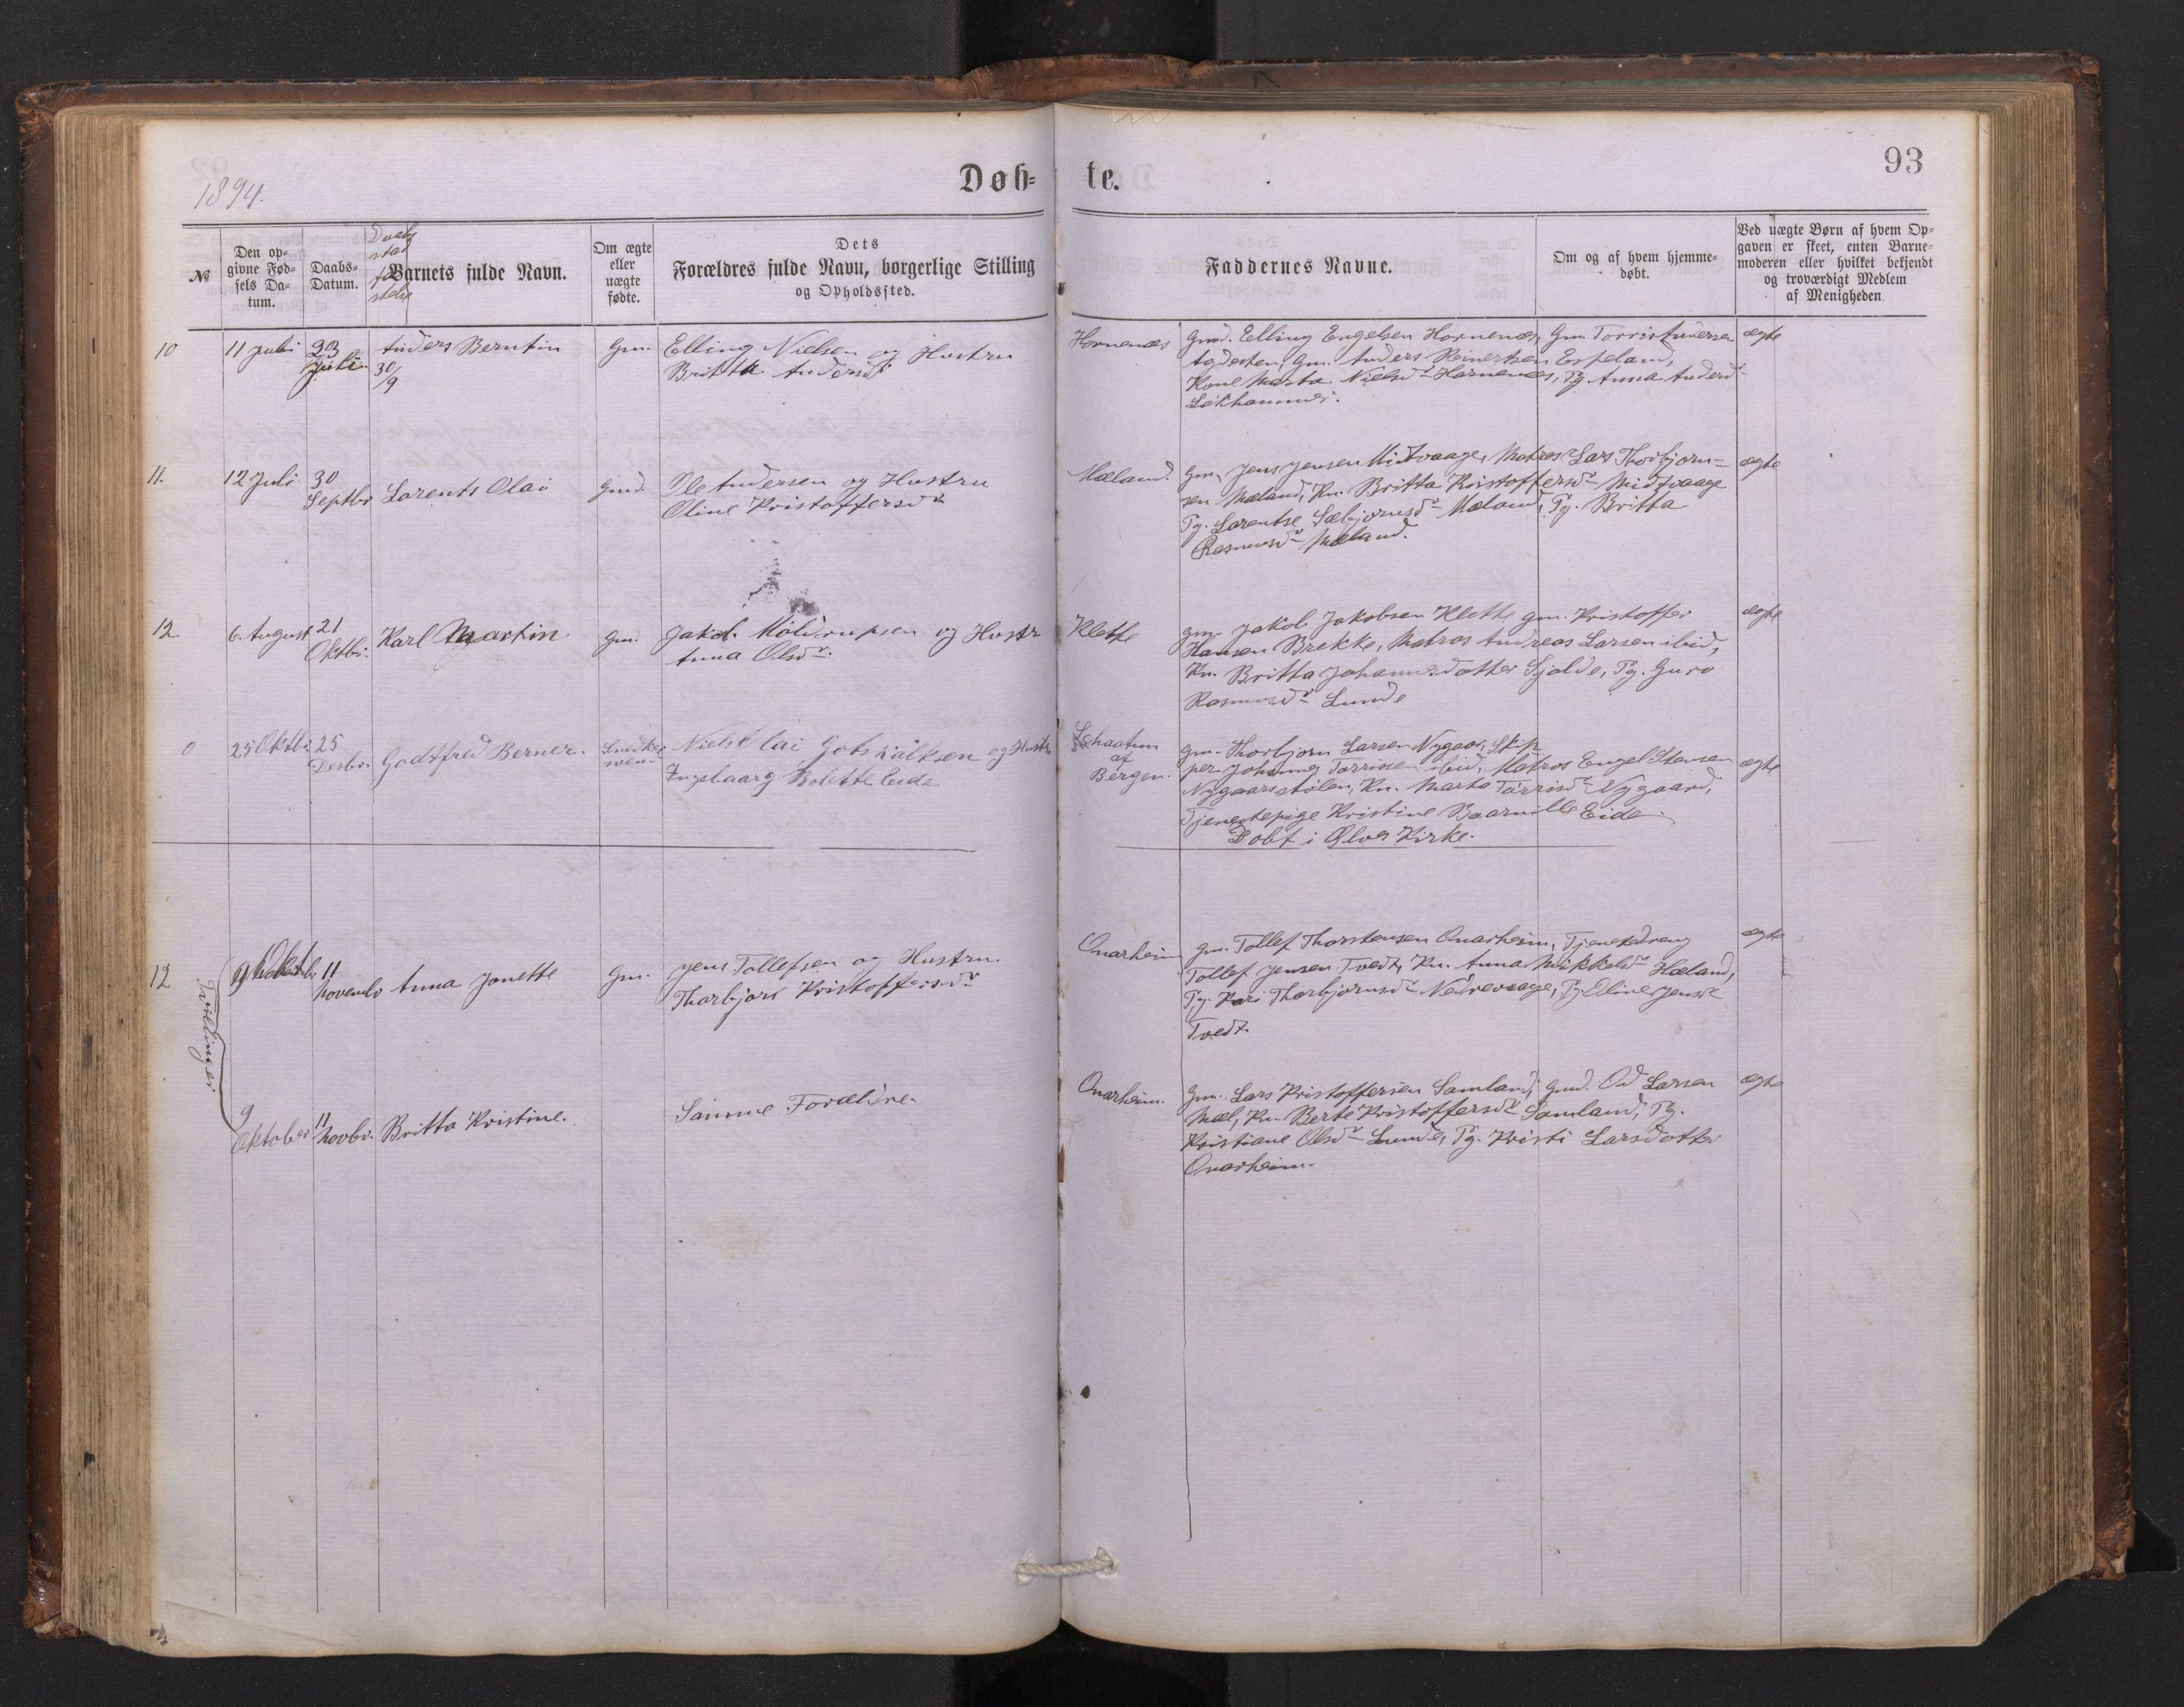 1894.
Døb-
te.
93
№
Den op-
givne Fød-
sels Da-
tum.
Daabs-
Datum.
Daabs
stad
fæ
stelse
Barnets fulde Navn.
Om ægte
eller
uægte
fødte.
Dets
Forældres fulde Navn, borgerlige Stilling
og Opholdssted.
Faddernes Navne.
Om og af hvem hjemme-
døbt.
Ved uægte Børn af hvem Op-
gaven er skeet, enten Barne-
moderen eller hvilket bekjendt
og troværdigt Medlem
af Menigheden.
10
11 Juli
23
Juli
Anders Berntin
30/9
Gm.
Elling Nielsen og Hustru
Britta Andersdr
Hornenæs
Gmd. Elling Engelsen Hornenæs, Gm. Torris Andersen
Gm. Anders Reinertsen Espeland,
Kone Marta Nielsdr Hornenæs, Pg Anna Andersdr
Løkhammer.
ægte
11.
12 Juli
30
Septbr
Lorents Olai
Gmd.
Ole Andersen og Hustru
Oline Kristoffersdr
Mæland.
Gm. Jens Jensen Midtvaage, Matros Lars Thorbjørn-
sen Mæland, Kn. Britta Kristoffersdr Midtvaage
Pg. Lorentse Sæbjørnsdr Mæland, Pg. Britta
Rasmusdr Mæland.
ægte
12
6. August
21
Oktbr.
Karl Martin
Gm.
Jakob Møldrupsen og Hustr
Anna Olsdr.
Klette
Gm. Jakob Jakobsen Klette Gm. Kristoffer
Hansen Brekke, Matros Andreas Larsen ibid,
Kn. Britta Johannesdotter Sjalde, Pg. Guro
Rasmusdr Lunde
ægte
0
25 Oktbr
25
Desbr.
Godtfred Berner.
Snedker
svend
Niels Olai Gotskalksen og Hustr
Ingebaarg Bolette Eide
af
Bergen.
Gm. Thorbjørn Larsen Nygaar, Skip
per Johannes Torrissen ibid, Matros Engel Stensen
Nygaarsstølen, Kn. Marta Torrisdr Nygaard,
Tjenestepige Kristine Baarnille Eide.
Døbt i Ølves Kirke.
ægte
12
Tvillinger
9 Oktbr
11
Novembr
Anna Jonette
Gm.
Jens Tollefsen og Hustru
Thorbjørs Kristoffersdr
Onarheim
Gm. Tollef Thorstensen Onarheim, Tjenestedreng
Tollef Jensen Tvedt, Kn. Anna Mikkelsdr Hæland,
Pg. Kari Thorbjørnsdr Nedrevaage, Pg Oline Jensdr
Tvedt.
ægte
9
Oktober
11
Novbr.
Britta Kristine.
Samme Forældre.
Onarheim.
Gm. Lars Kristoffersen Samland, Gmd. Od Larsen
Mæl, Kn. Berte Kristoffersdr Samland, Pg.
Kristiane Olsdr Lunde, Pg. Kristi Larsdotter
Onarheim.
ægte